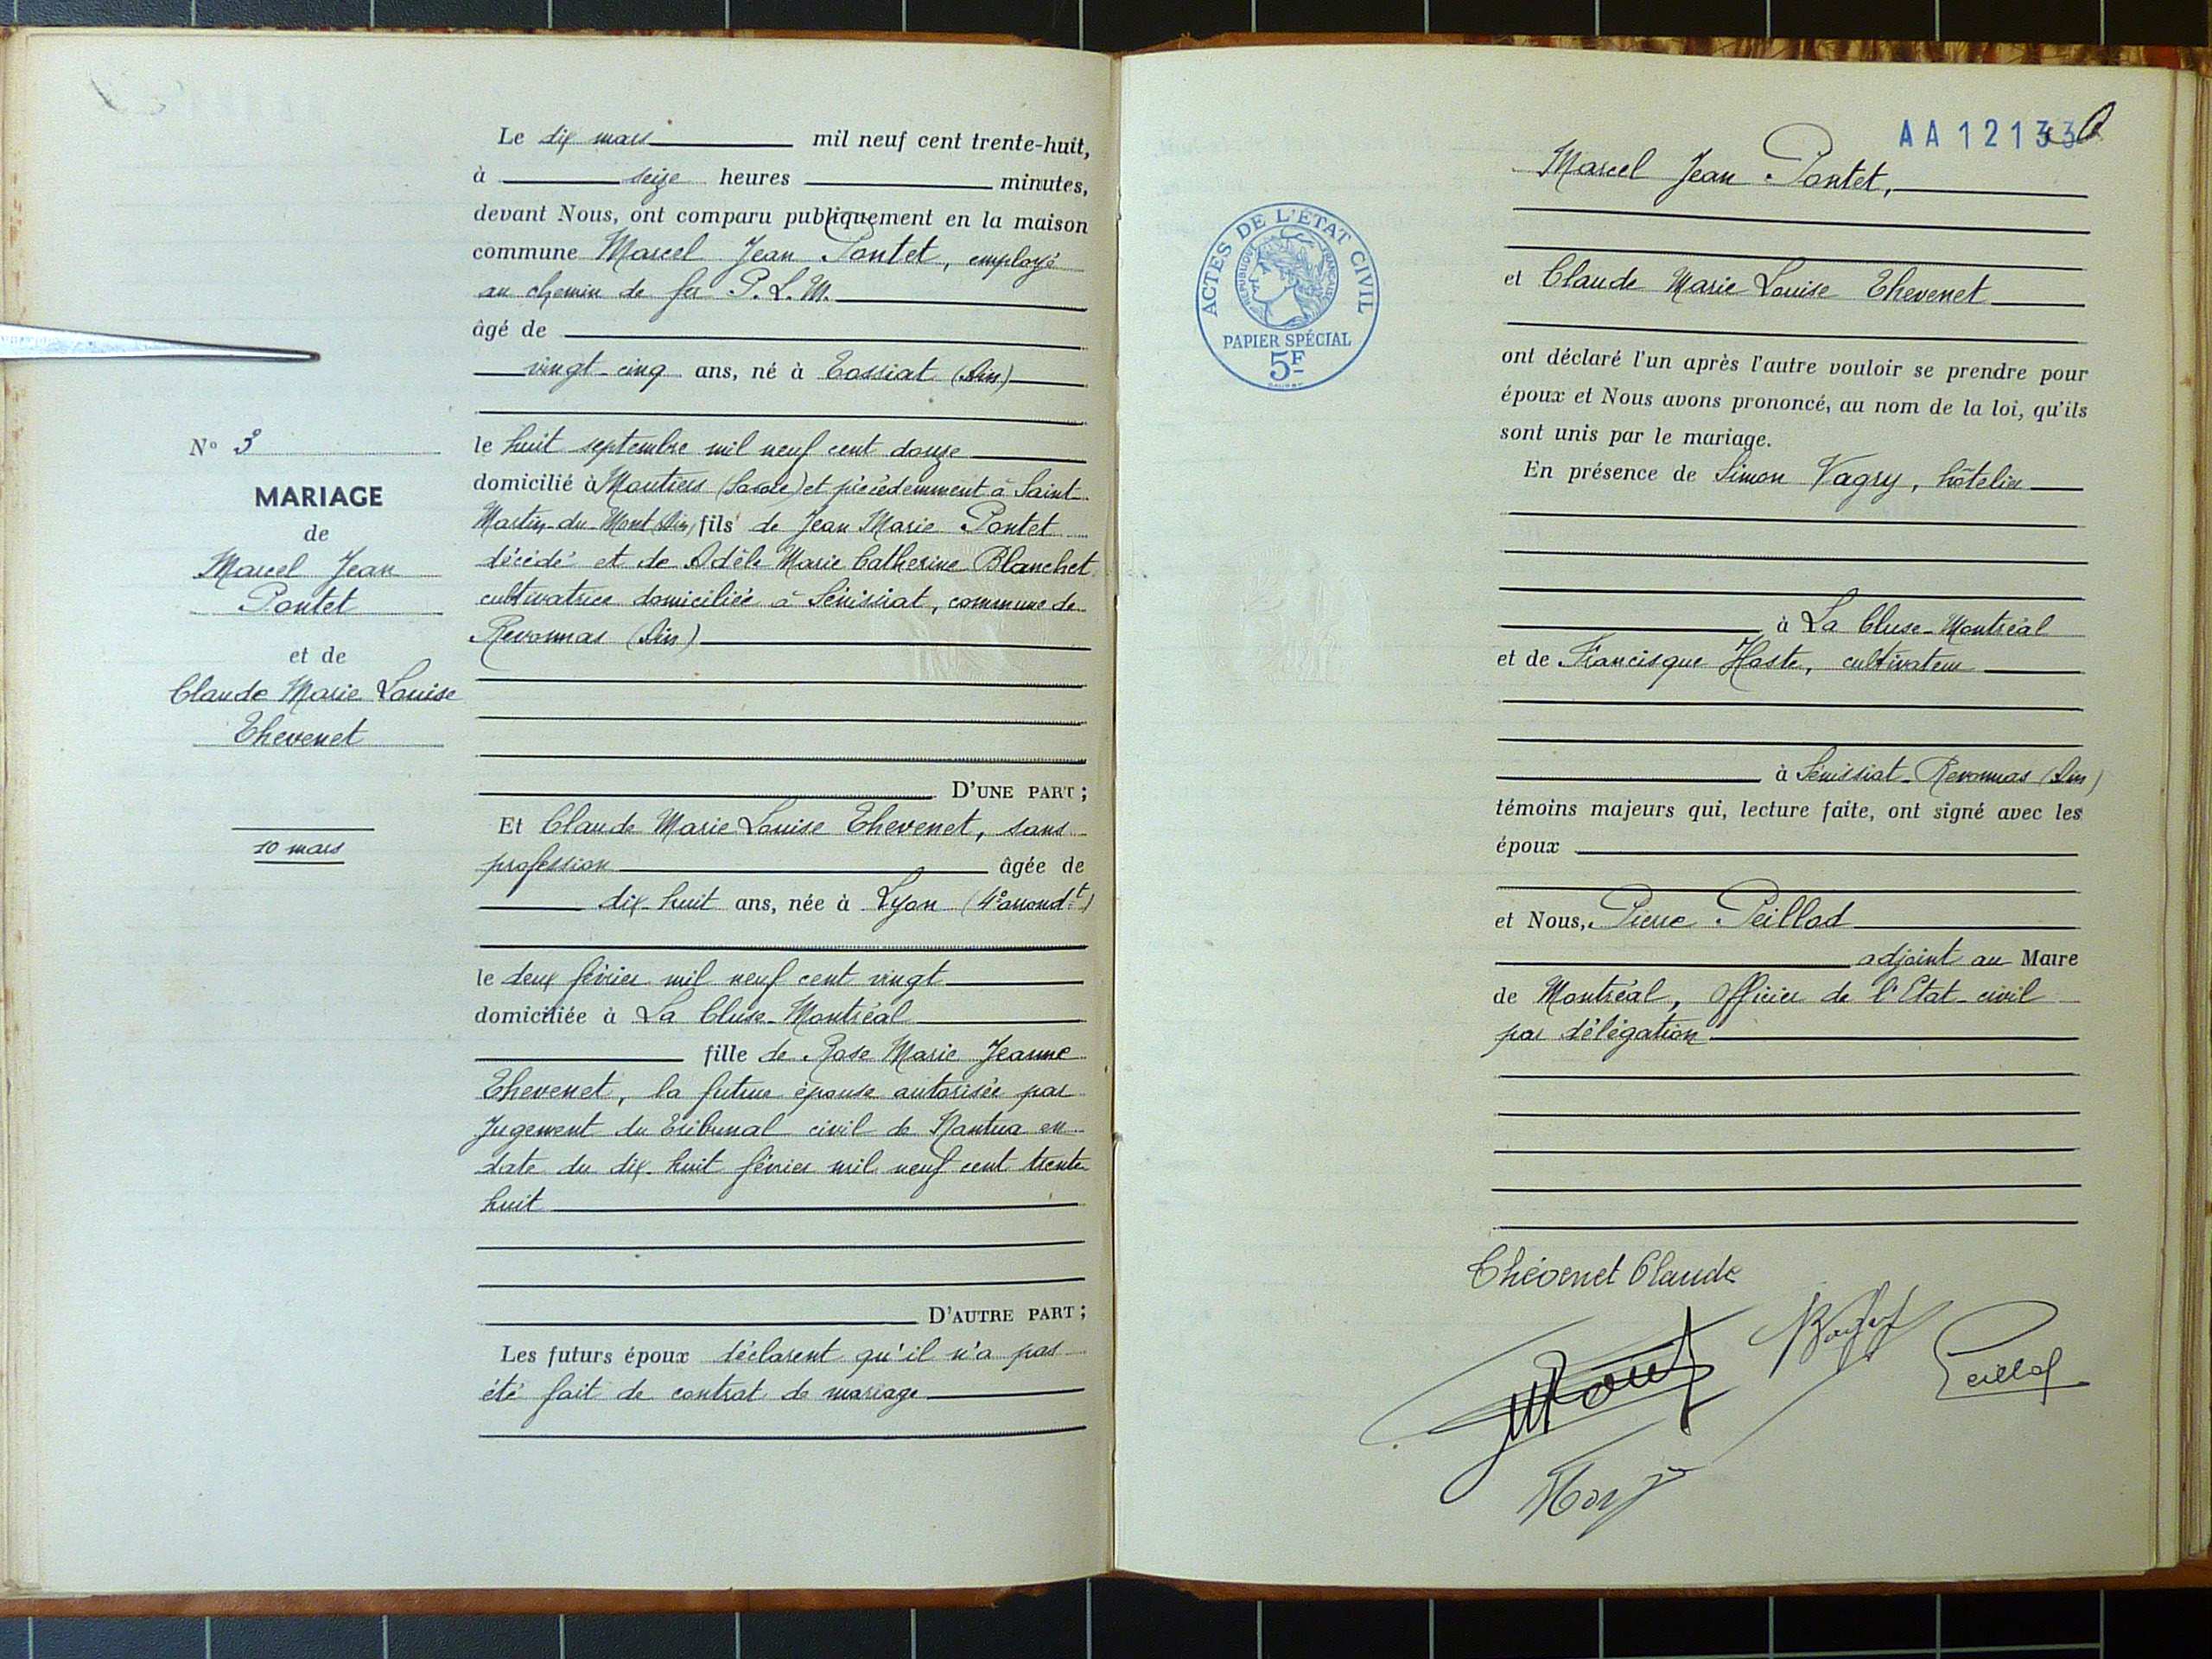 Le dix mars mil neuf cent trente-huit,
à seize heures minutes,
devant Nous, ont comparu publiquement en la maison
commune Marcel Jean Pontet, employé
au chemin de fer P.L.M.
âgé de
vingt-cinq ans, né à Tossiat (Ain)
le huit septembre mil neuf cent douze
domicilié à Moutiers (Savoie) et précédemment à Saint-
Martin-du-Mont (Ain) fils de Jean Marie Pontet
décédé et de Adèle Marie Catherine Blanchet
cultivatrice domiciliée à Sénissiat, commune de
Revonnas (Ain)
D'UNE PART ;
Et Claude Marie Louise Thevenet, sans
profession âgée de
dix-huit ans, née à Lyon (4e arrondt)
le deux février mil neuf cent vingt
domiciliée à La Cluse-Montréal
fille de Rose Marie Jeanne
Thevenet, la future épouse autorisée par
Jugement du Tribunal civil de Nantua en
date du dix-huit février mil neuf cent trente
huit
D'AUTRE PART ;
Les futurs époux déclarent qu'il n'a pas
été fait de contrat de mariage
N° 3
MARIAGE
de
Marcel Jean
Pontet
et de
Claude Marie Louise
Thevenet
10 mars
AA 12133
ACTES DE L'ÉTAT CIVIL
RÉPUBLIQUE FRANÇAISE
PAPIER SPÉCIAL
5F
Marcel Jean Pontet,
et Claude Marie Louise Thevenet
ont déclaré l'un après l'autre vouloir se prendre pour
époux et Nous avons prononcé, au nom de la loi, qu'ils
sont unis par le mariage.
En présence de Simon Vagry, hôtelier
à La Cluse-Montréal
et de Francisque Haste, cultivateur
à Sénissiat-Revonnas (Ain)
témoins majeurs qui, lecture faite, ont signé avec les
époux
et Nous, Pierre Peillod
adjoint au Maire
de Montréal, Officier de l'Etat-civil
par délégation
Thévenet Claude
Peillod